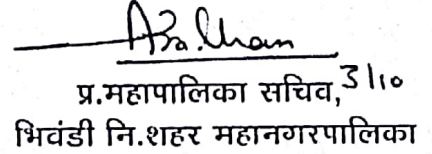 प्र.महापालिका सचिव, 3/10
भिवंडी नि.शहर महानगरपालिका